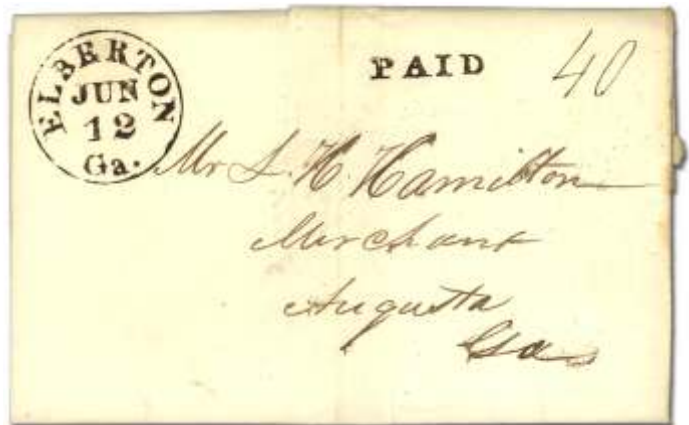 ELBERTON
JUN
12
Ga.
PAID
40
Mr L. H. Hamilton
Merchant
Augusta
Ga